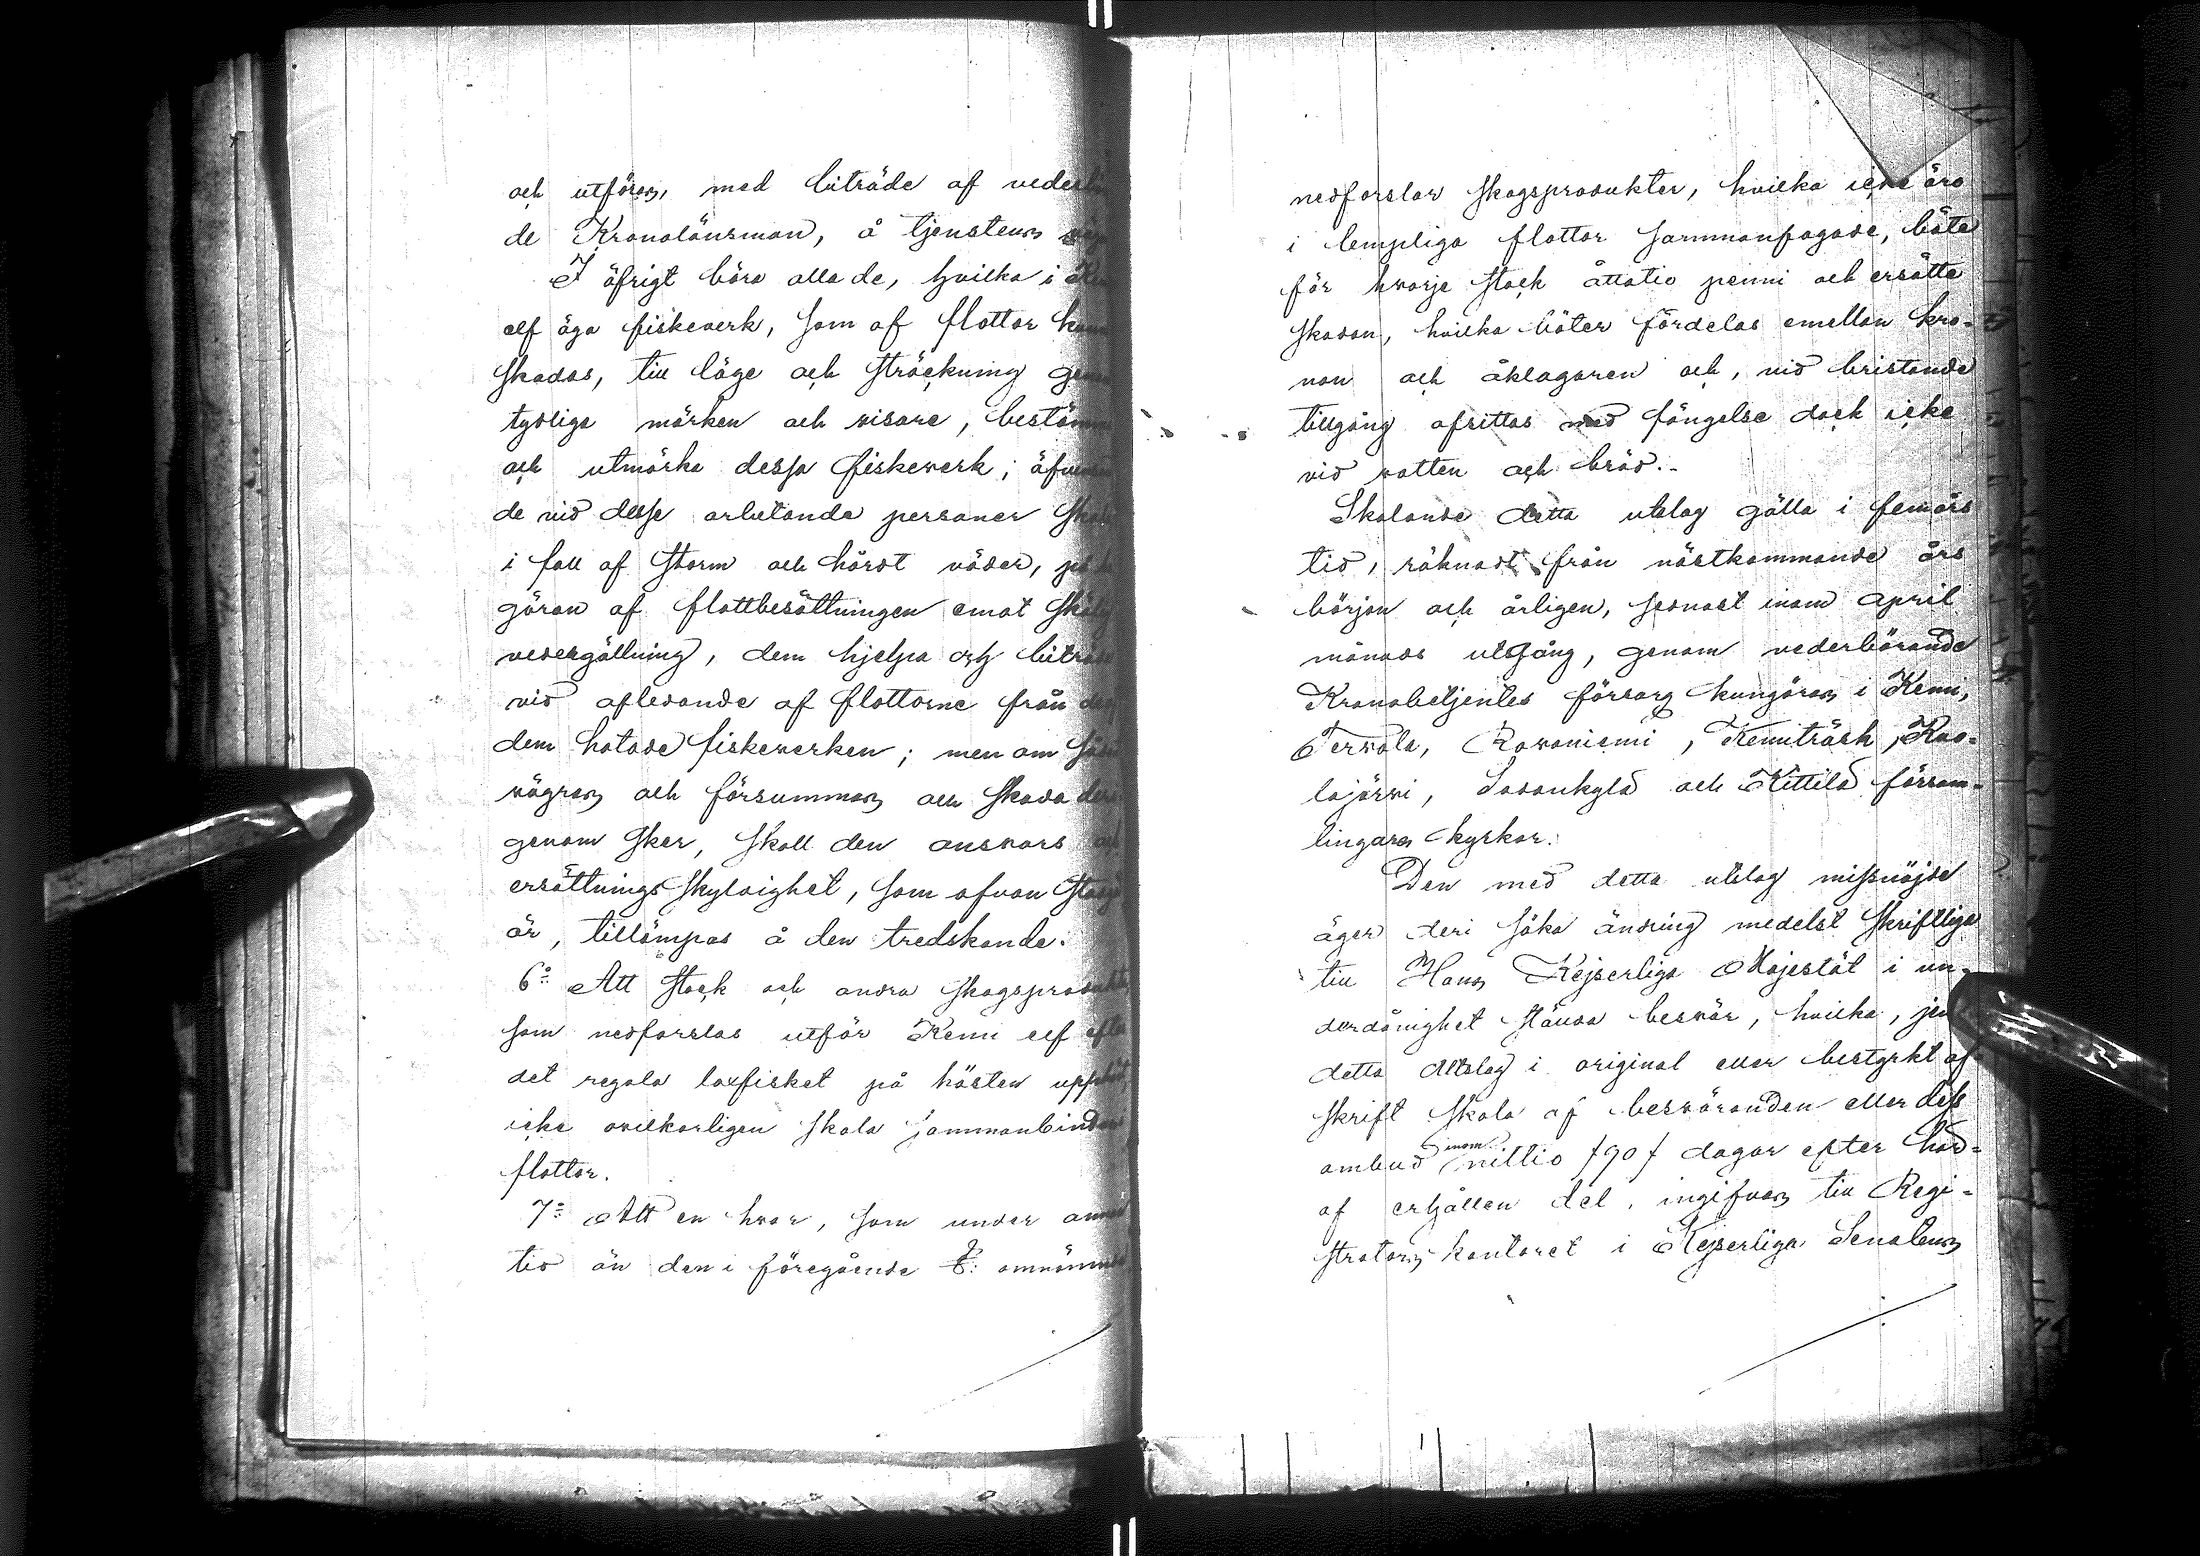 och utföras, med biträde af
de Kronolänsman, å tjenstens
I öfrigt böra alla de, hvilka i
elf äga fiskeverk, som af flottor
skadas, till läge och sträckning
tydliga märken och visare,
och utmärka dessa fiskeverk;
de vid desse arbetande personer
i fall af storm och hårdt väder,
göran af flottbesättningen emot
vedergällning, dem hjelpa och
vid afledande af flottorne från
dem hotade fiskeverken; men om
vägras och försummas och skada
genom sker, skall den ansvars
ersättnings skyldighet, som ofvan
är, tillämpas å den tredskande.
6:o Att stock och andra
som nedforslas utför Kemi elf
det regala laxfisket på hösten
icke ovilkorligen skola
flottor.
7:o Att en hvar, som under
tid än den i föregående
nedforslar skogsprodukter, hvilka icke äro
i lempliga flottor sammanfogade, böte
för hvarje stock åttatio penni och ersätte
skadan, hvilka böter fördelas emellan kro-
nan och åklagaren och, vid bristande
tillgång afsittas med fängelse dock icke
vid vatten och bröd.
Skolande detta utslag gälla i femårs
tid, räknadt från nästkommande års
början och årligen, sednast inom april
månads utgång, genom vederbörande
Kronobetjentes försorg kungöras i Kemi,
Tervola, Rovaniemi, Kemiträsk, Kuo-
lajärvi, Sodankylä och Kittilä försam-
lingars kyrkor.
Den med detta utslag missnöjde
äger deri söka ändring medelst skriftliga
till Hans Kejserliga Majestät i un-
derdånighet stälda besvär, hvilka,
detta Utslag i original eller bestyrkt af-
skrift skola af besväranden eller dess
ombud inom nittio /90/ dagar efter här-
af erhållen del, ingifvas till Regi-
strators kontoret i Kejserliga Senatens